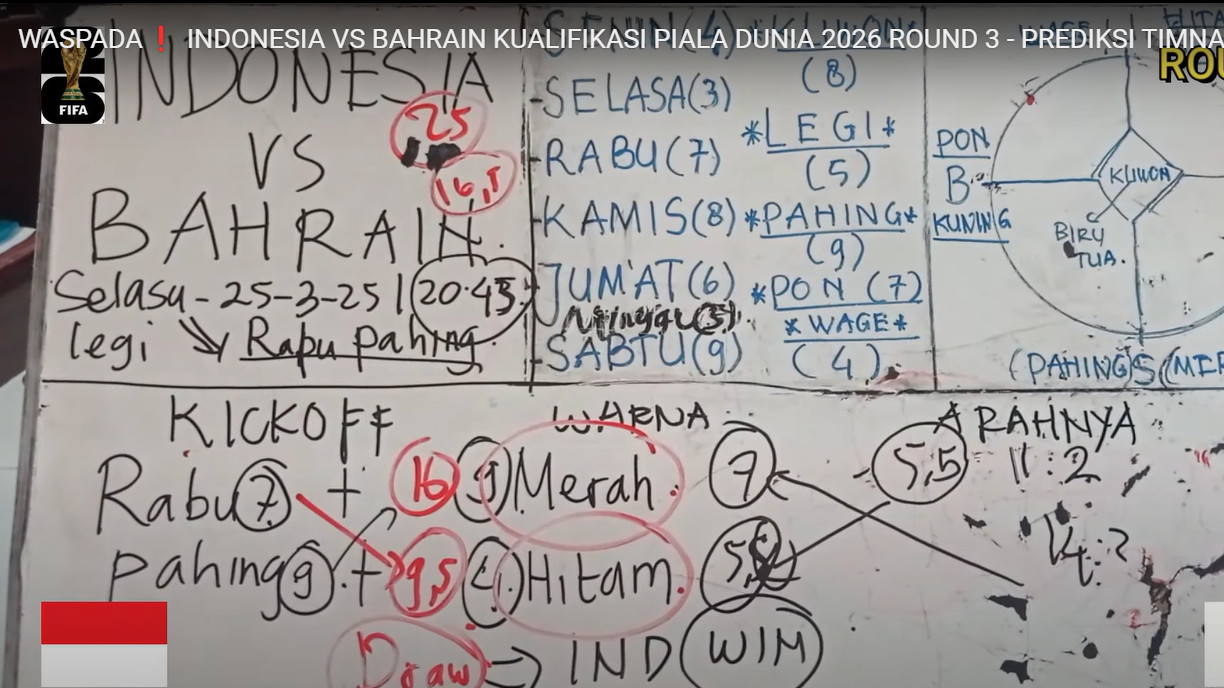 WASPADA❗ INDONESIA VS BAHRAIN KUALIFIKASI PIALA DUNIA 2026 ROUND 3 - PREDIKSI TIMNA
FIFA
ROU
INDONESIA
25
VS
16,5
BAHRAIN.
Selasa - 25-3-25 | 20.45
legi Rabu pahing.
SENIN (4)
-SELASA(3)
-RABU(7)
-KAMIS(8)
-JUM'AT(6)
Minggu(5)
-SABTU(9)
*KLIWON*
(8)
*LEGI*
(5)
*PAHING*
(9)
*PON (7)
*WAGE*
(4)
PON
B
KUNING
KLIWON
BIRU
TUA.
(PAHING)S(MER
KICKOFF
Rabu 7 + 16
Pahing 9 + 9,5
WARNA
9) Merah. 7
4.) Hitam.
ARAHNYA
5,5 11:2
14:2
Draw → IND WIN